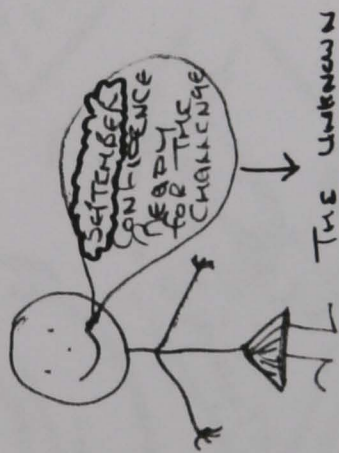 SEPTEMBER
CONFIDENCE
READY
FOR THE
CHALLENGE
THE UNKNOWN